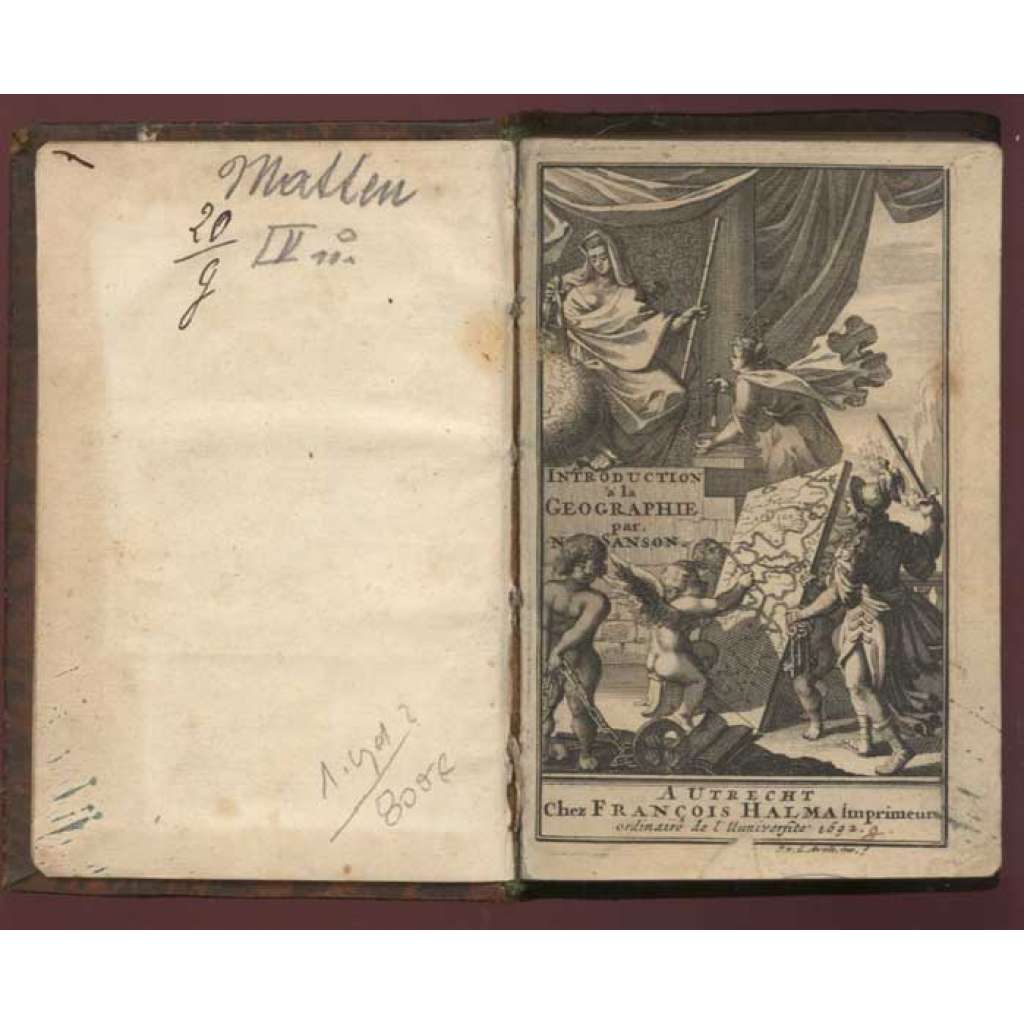 Matten
20
g
IV
INTRODUCTION
a la
GEOGRAPHIE
par.
N. SANSON.
A UTRECHT
Chez FRANÇOIS HALMA imprimeur
ordinaire de l'Université 1692.